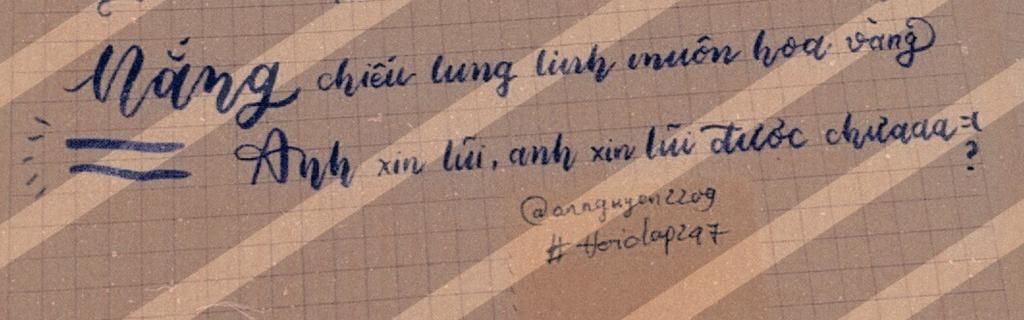 Nắng chiếu lung linh muôn hoa vàng
Anh xin lũi, anh xin lũi được chưaaa =(
?
@annguyen2209
#Hoidap247